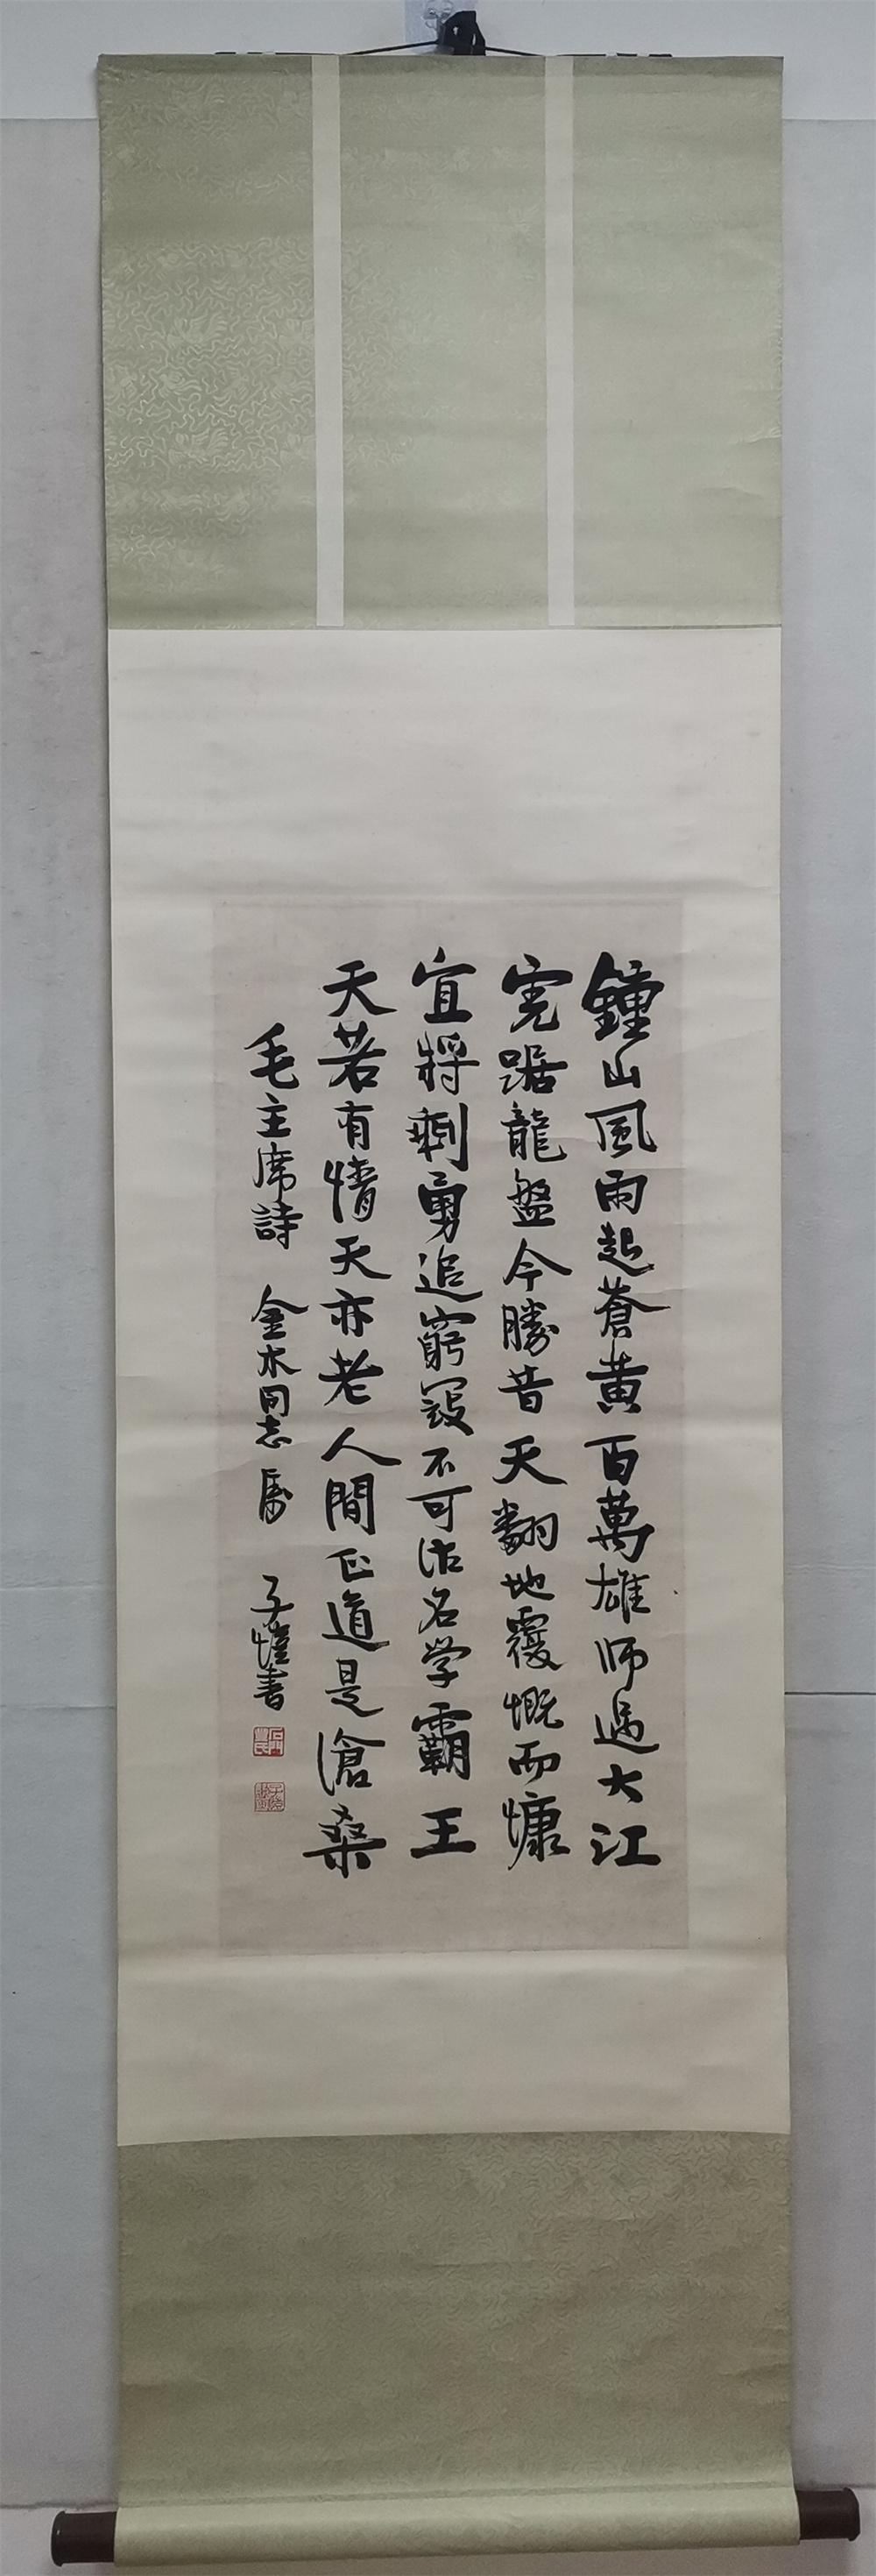 鐘山風雨起蒼黄百萬雄師過大江
虎踞龍盤今勝昔天翻地覆慨而慷
宜將剩勇追窮寇不可沽名学霸王
天若有情天亦老人間正道是滄桑
毛主席詩 金木同志属 子愷書